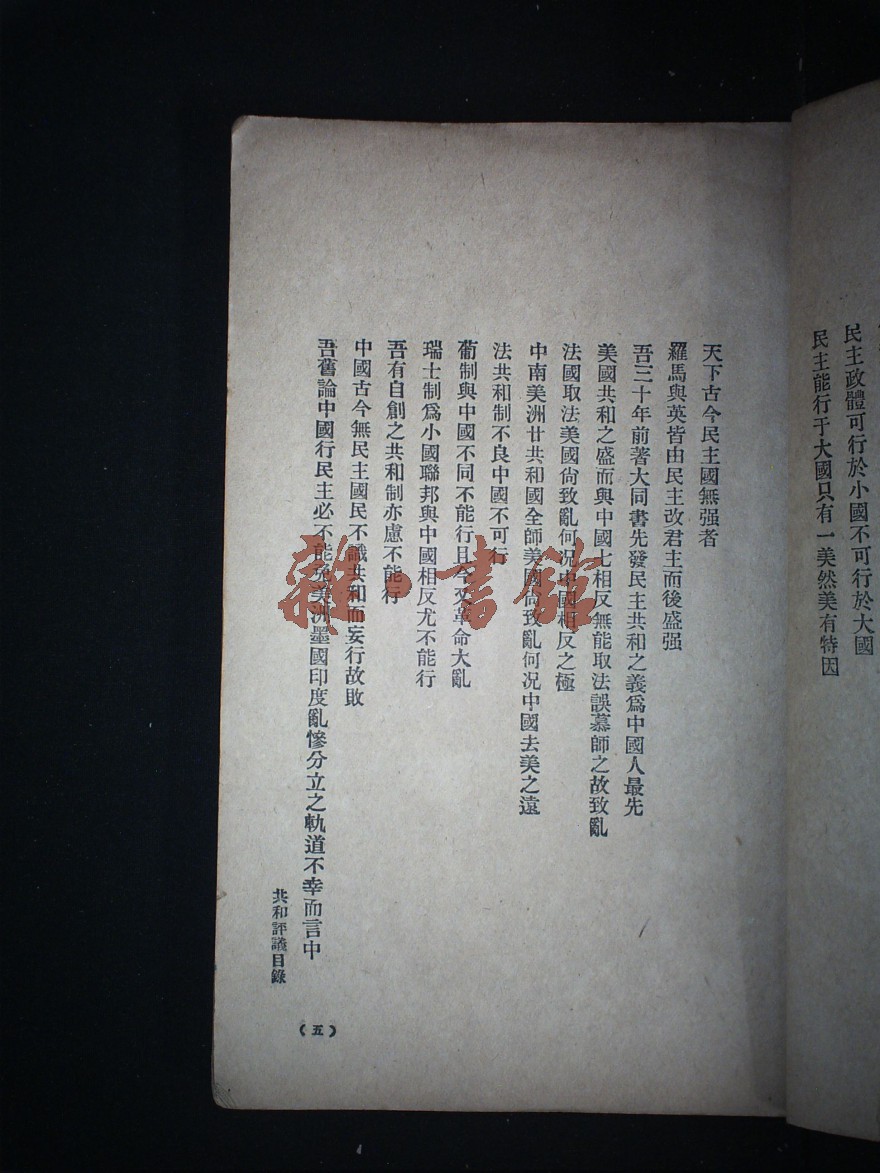 民主政體可行於小國不可行於大國
民主能行于大國只有一美然美有特因
天下古今民主國無强者
羅馬與英皆由民主改君主而後盛强
吾三十年前著大同書先發民主共和之義爲中國人最先
美國共和之盛而與中國七相反無能取法誤慕師之故致亂
法國取法美國尙致亂何況中國相反之極
中南美洲廿共和國全師美國尙致亂何况中國去美之遠
法共和制不良中國不可行
葡制與中國不同不能行且今又革命大亂
瑞士制爲小國聯邦與中國相反尤不能行
吾有自創之共和制亦慮不能行
中國古今無民主國民不識共和而妄行故敗
吾舊論中國行民主必不能免美洲墨國印度亂慘分立之軌道不幸而言中
共和評議目錄
(五)
雜·書館